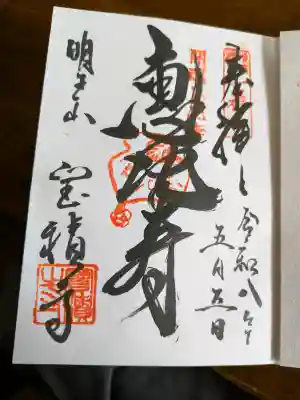 奉拝
令和八年
五月五日
恵比寿
明王山
宝積寺